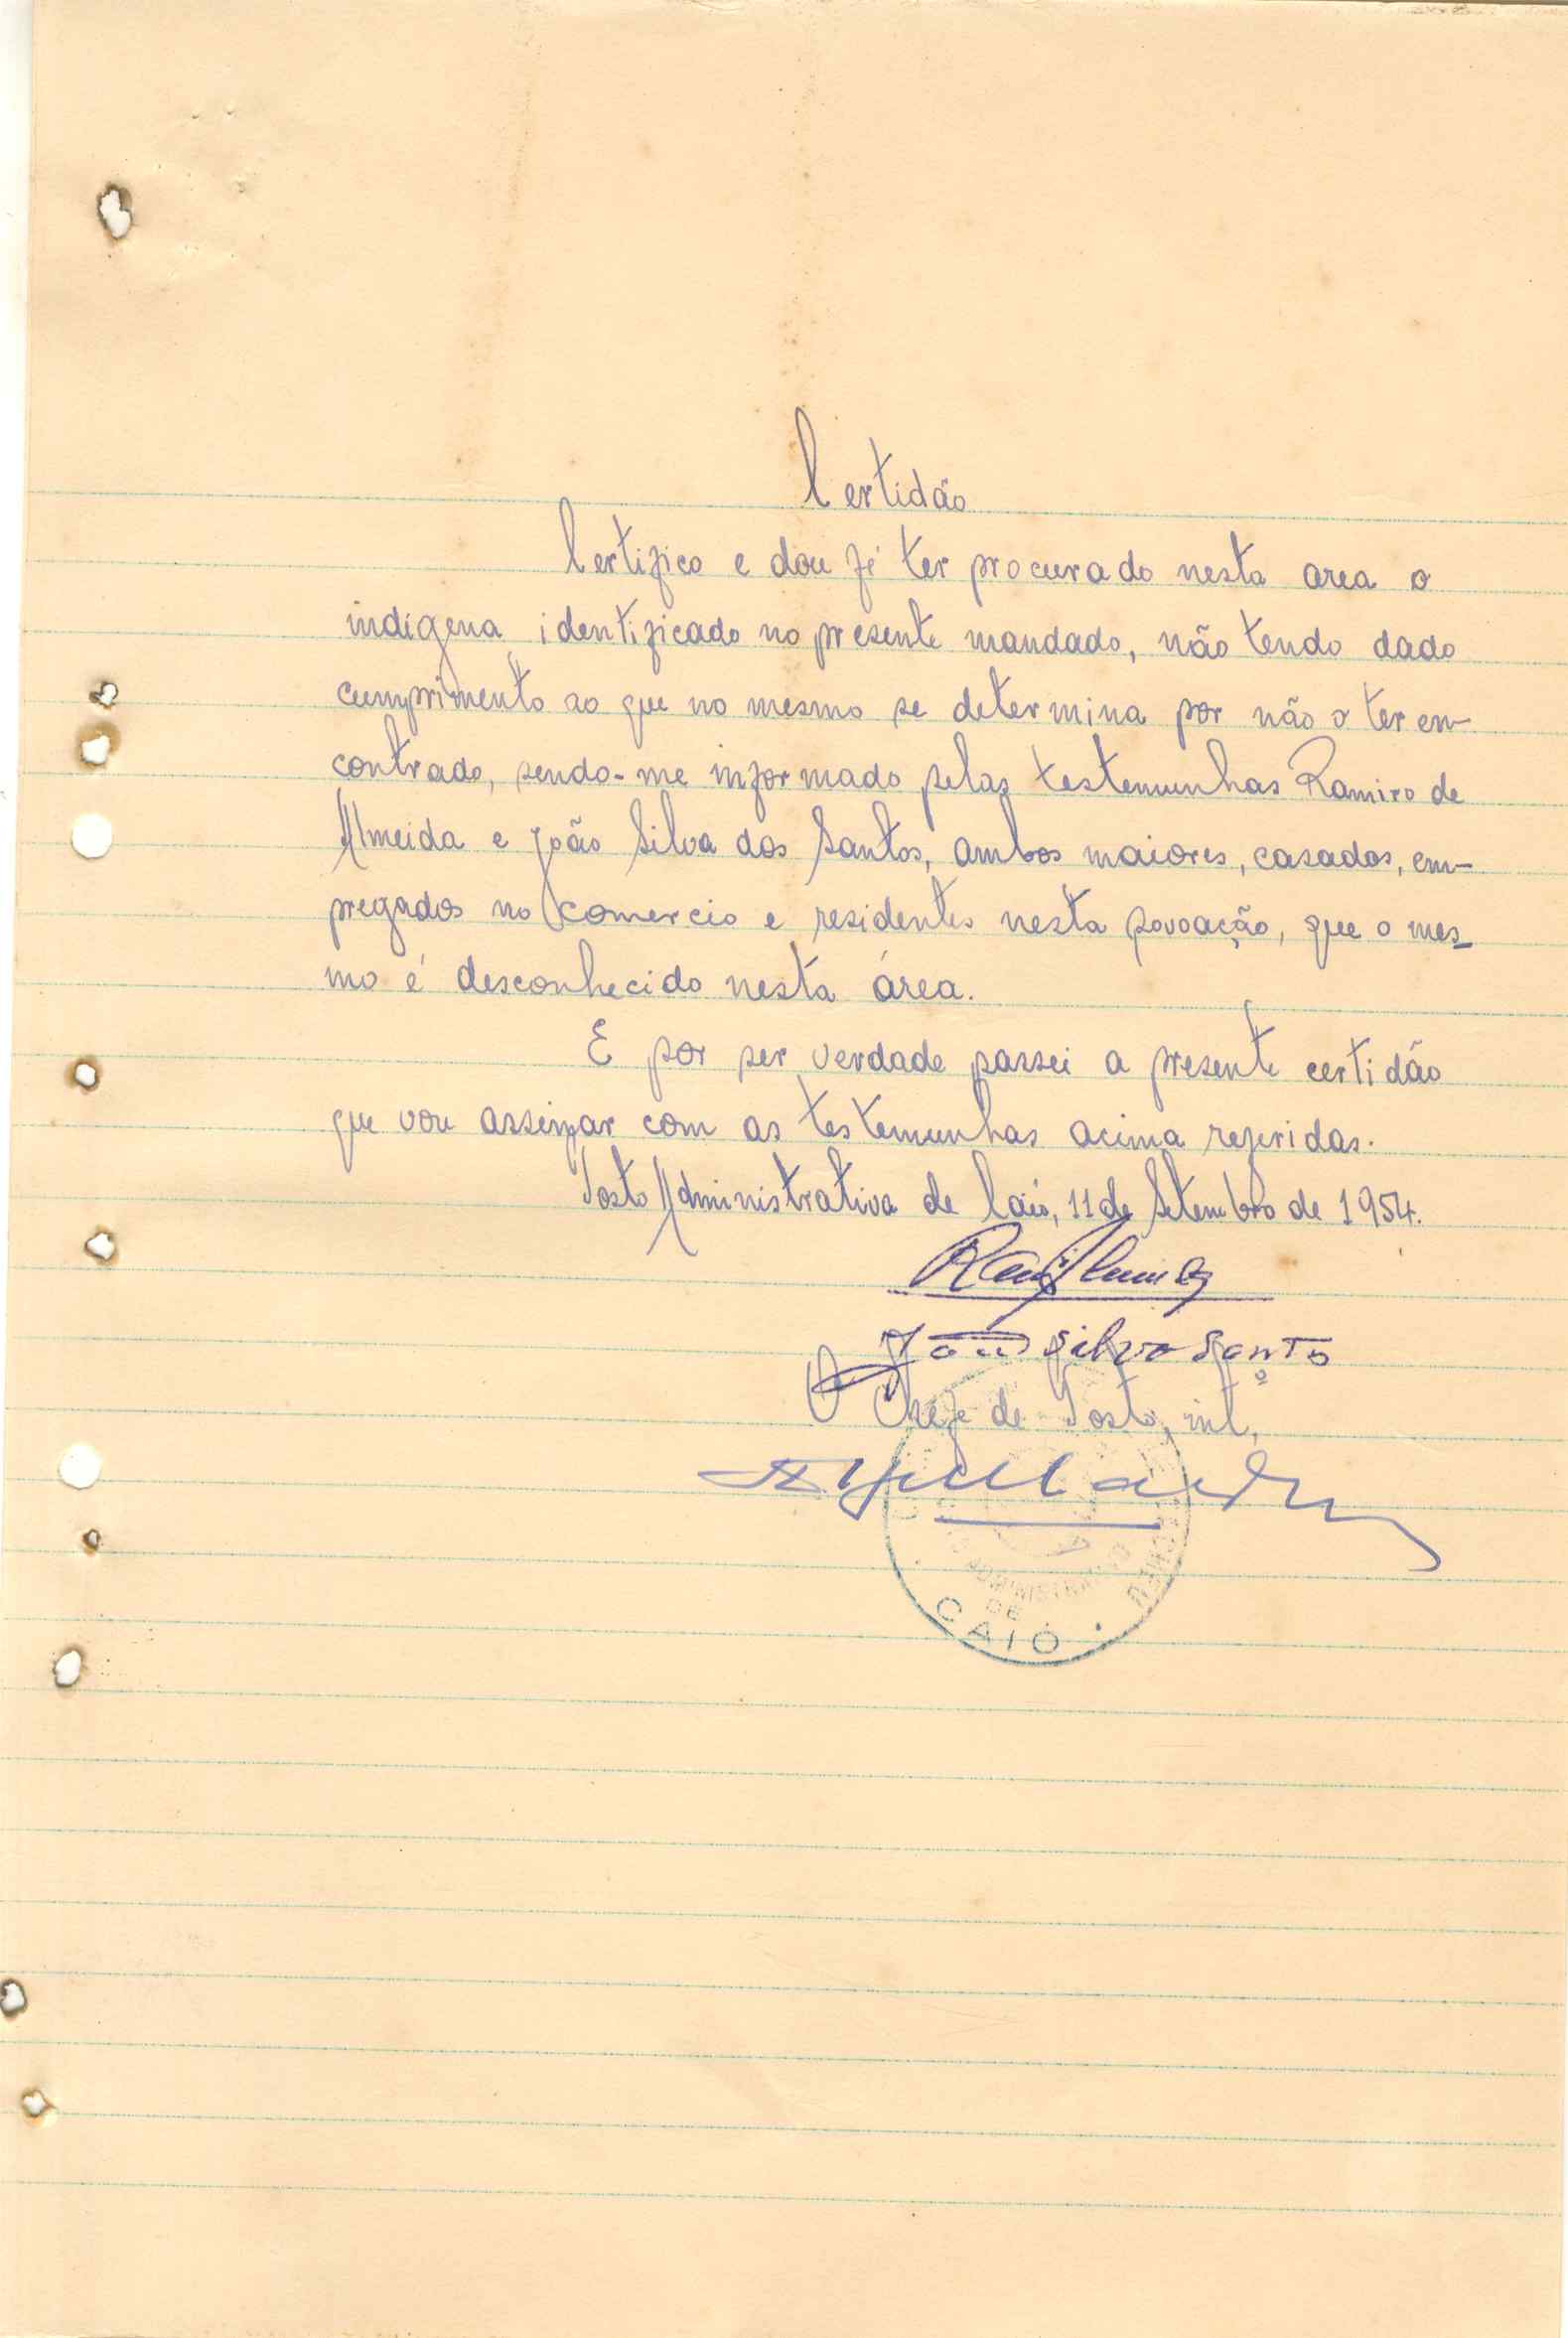 Certidão
Certifico e dou fé ter procurado nesta area o
indígena identificado no presente mandado, não tendo dado
cumprimento ao que no mesmo se determina por não o ter en-
contrado, sendo-me informado pelas testemunhas Ramiro de
Almeida e João Silva dos Santos, ambos maiores, casados, em-
pregados no comercio e residentes nesta povoação, que o mes-
mo é desconhecido nesta área.
E por ser verdade passei a presente certidão
que vou assignar com as testemunhas acima referidas.
Posto Administrativa de Caió, 11 de Setembro de 1954.
João Silva Santo
O Chefe de Posto, int,
ADMINISTRATIVO
DE
CAIÓ